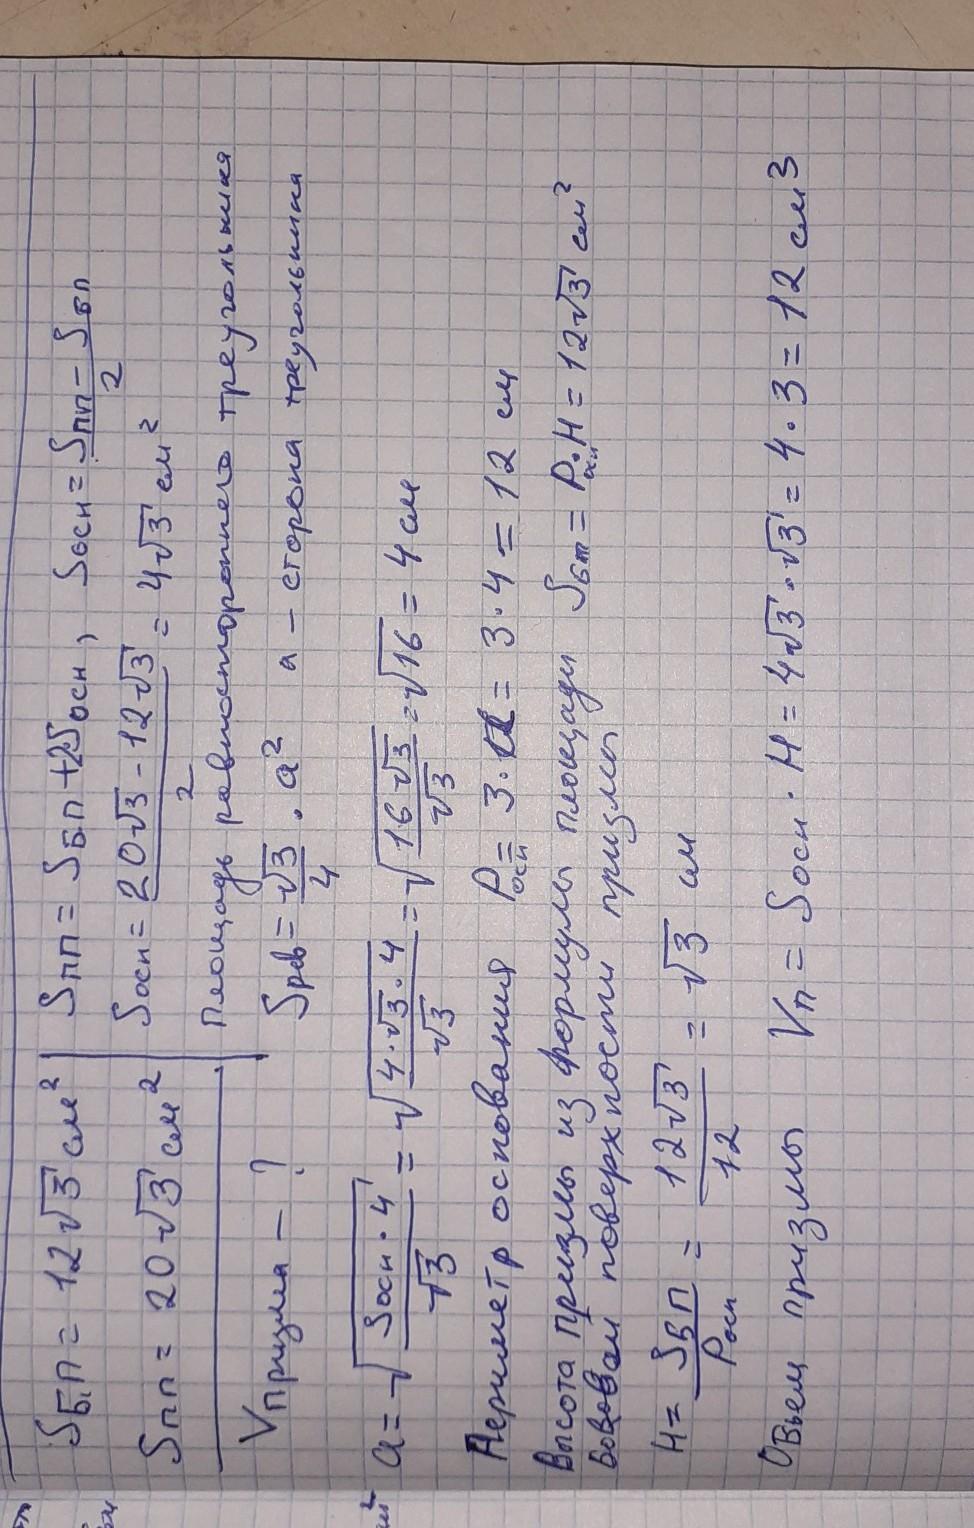 Sбп = 12√3 см²
Sпп = 20√3 см²
Vпризма – ?
Sпп = Sбп + 2Sосн, Sосн = (Sпп – Sбп)/2
Sосн = (20√3 - 12√3)/2 = 4√3 см²
Площадь равностороннего треугольника
Sрав = √3/4 · a² a – сторона треугольника
a = √(Sосн · 4/√3) = √(4·√3·4/√3) = √(16√3/√3) = √16 = 4 см
Периметр основания Pосн = 3·a = 3·4 = 12 см
Высота призмы из формулы площади Sбп = Pосн·H = 12√3 см²
боковой поверхности призмы
H = Sбп/Pосн = 12√3/12 = √3 см
Объем призмы Vп = Sосн · H = 4√3·√3 = 4·3 = 12 см3